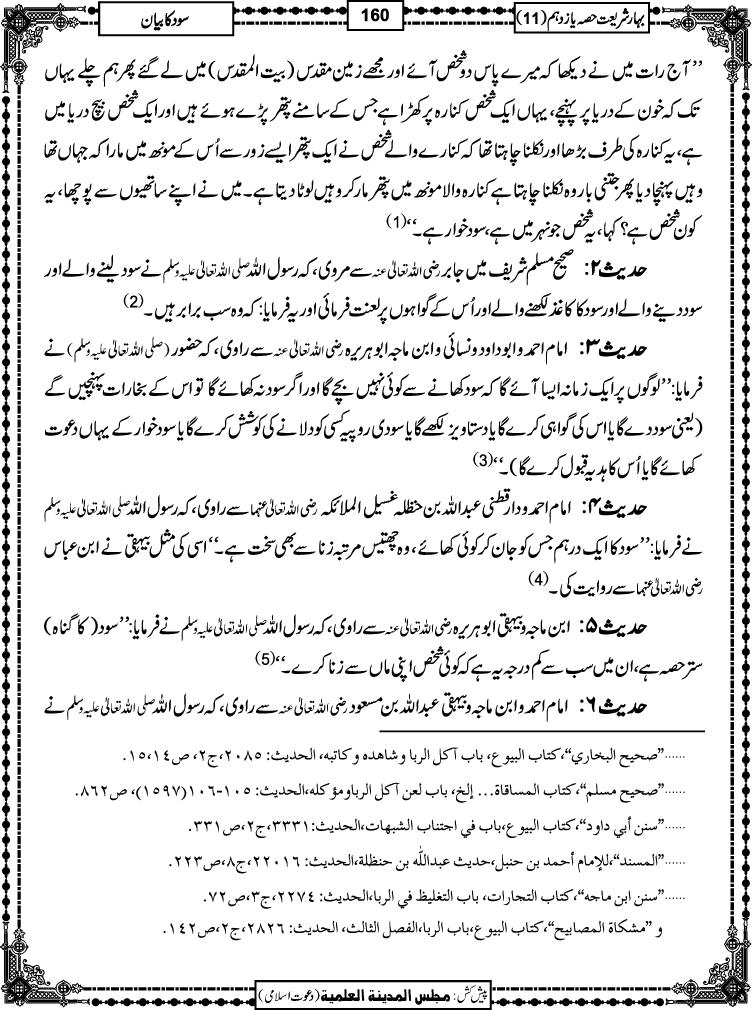 بہارِ شریعت حصہ یازدہم (11)
160
سود کا بیان
’’آج رات میں نے دیکھا کہ میرے پاس دو شخص آئے اور مجھے زمین مقدس (بیت المقدس) میں لے گئے پھر ہم چلے یہاں
تک کہ خون کے دریا پر پہنچے، یہاں ایک شخص کنارہ پر کھڑا ہے جس کے سامنے پتھر پڑے ہوئے ہیں اور ایک شخص بیچ دریا میں
ہے، یہ کنارہ کی طرف بڑھا اور نکلنا چاہتا تھا کہ کنارے والے شخص نے ایک پتھر ایسے زور سے اُس کے مونھ میں مارا کہ جہاں تھا
وہیں پہنچا دیا پھر جتنی بار وہ نکلنا چاہتا ہے کنارہ والا مونھ میں پتھر مار کر وہیں لوٹا دیتا ہے۔ میں نے اپنے ساتھیوں سے پوچھا، یہ
کون شخص ہے؟ کہا، یہ شخص جو نہر میں ہے، سود خوار ہے۔‘‘ (1)
حدیث ۲: صحیح مسلم شریف میں جابر رضی اللہ تعالیٰ عنہ سے مروی، کہ رسول اللہ صلی اللہ تعالیٰ علیہ وسلم نے سود لینے والے اور
سود دینے والے اور سود کا کاغذ لکھنے والے اور اُس کے گواہوں پر لعنت فرمائی اور یہ فرمایا: کہ وہ سب برابر ہیں۔ (2)
حدیث ۳: امام احمد و ابو داود و نسائی و ابن ماجہ ابوہریرہ رضی اللہ تعالیٰ عنہ سے راوی، کہ حضور (صلی اللہ تعالیٰ علیہ وسلم) نے
فرمایا: ’’لوگوں پر ایک زمانہ ایسا آئے گا کہ سود کھانے سے کوئی نہیں بچے گا اور اگر سود نہ کھائے گا تو اس کے بخارات پہنچیں گے
(یعنی سود دے گا یا اس کی گواہی کرے گا یا دستاویز لکھے گا یا سودی روپیہ کسی کو دلانے کی کوشش کرے گا یا سود خوار کے یہاں دعوت
کھائے گا یا اُس کا ہدیہ قبول کرے گا)۔‘‘ (3)
حدیث ۴: امام احمد و دارقطنی عبداللہ بن حنظلہ غسیل الملائکہ رضی اللہ تعالیٰ عنہما سے راوی، کہ رسول اللہ صلی اللہ تعالیٰ علیہ وسلم
نے فرمایا: ’’سود کا ایک درہم جس کو جان کر کوئی کھائے، وہ چھتیس مرتبہ زنا سے بھی سخت ہے۔‘‘ اسی کی مثل بیہقی نے ابن عباس
رضی اللہ تعالیٰ عنہما سے روایت کی۔ (4)
حدیث ۵: ابن ماجہ و بیہقی ابوہریرہ رضی اللہ تعالیٰ عنہ سے راوی، کہ رسول اللہ صلی اللہ تعالیٰ علیہ وسلم نے فرمایا: ’’سود (کا گناہ)
ستر حصہ ہے، ان میں سب سے کم درجہ یہ ہے کہ کوئی شخص اپنی ماں سے زنا کرے۔‘‘ (5)
حدیث ۶: امام احمد و ابن ماجہ و بیہقی عبداللہ بن مسعود رضی اللہ تعالیٰ عنہ سے راوی، کہ رسول اللہ صلی اللہ تعالیٰ علیہ وسلم نے
......”صحيح البخاري“،كتاب البيوع، باب آكل الربا وشاهده وكاتبه، الحديث: ٢٠٨٥،ج٢،ص١٥،١٤.
......”صحيح مسلم“،كتاب المساقاة... إلخ، باب لعن آكل الرباومؤكله،الحديث: ١٠٥-١٠٦(١٥٩٧)، ص٨٦٢.
......”سنن أبي داود“،كتاب البيوع،باب في اجتناب الشبهات،الحديث:٣٣٣١،ج٢،ص٣٣١.
......”المسند“،للإمام أحمد بن حنبل،حديث عبدالله بن حنظلة،الحديث: ٢٢٠١٦،ج٨،ص٢٢٣.
......”سنن ابن ماجه“،كتاب التجارات، باب التغليظ في الربا،الحديث: ٢٢٧٤،ج٣،ص٧٢.
و ”مشكاة المصابيح“،كتاب البيوع،باب الربا،الفصل الثالث، الحديث: ٢٨٢٦،ج٢،ص١٤٢.
پیش کش: مجلس المدينة العلمية (دعوت اسلامی)